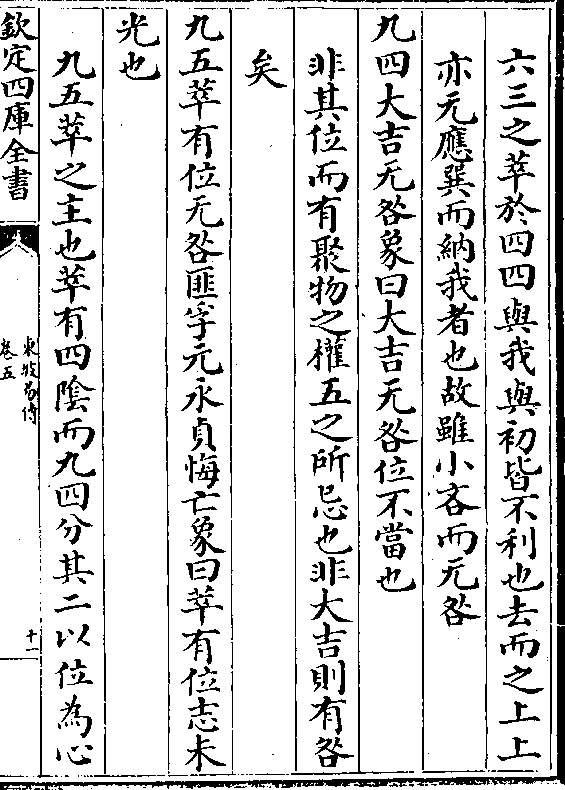 六三之萃於四四與我與初皆不利也去而之上上
亦无應巽而納我者也故雖小吝而无咎
九四大吉无咎象曰大吉无咎位不當也
非其位而有聚物之權五之所忌也非大吉則有咎
矣
九五萃有位无咎匪孚元永貞悔亡象曰萃有位志未
光也
九五萃之主也萃有四陰而九四分其二以位為心
欽定四庫全書
東坡易傳
卷五
十一